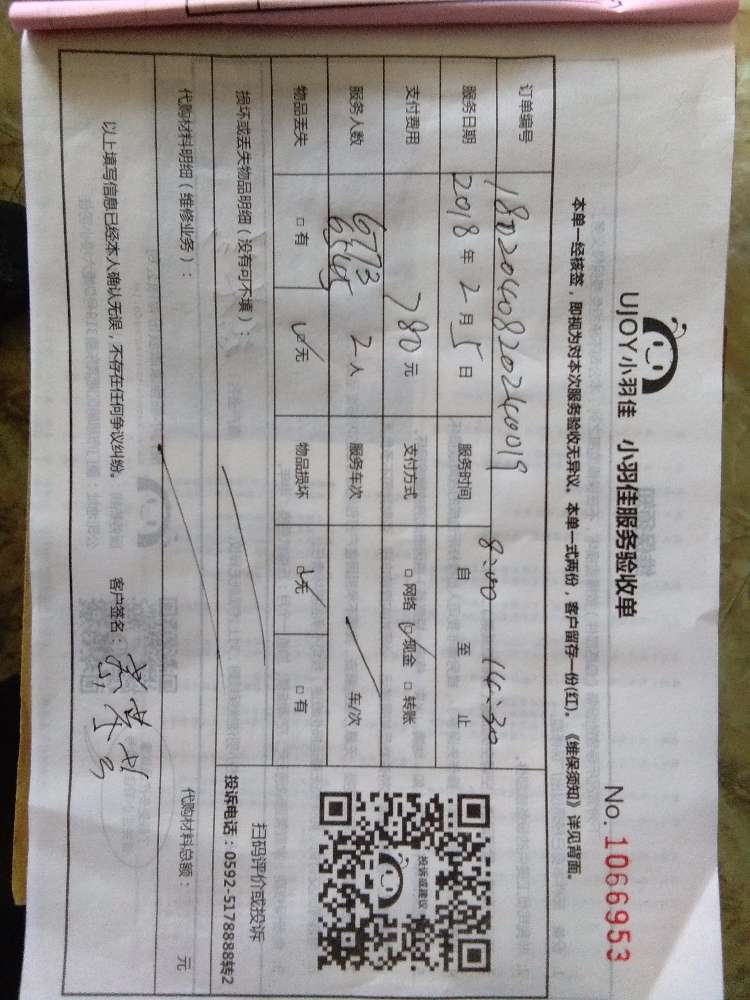 UJOY小羽佳 小羽佳服务验收单
No. 1066953
本单一经核签，即视为对本次服务验收无异议。本单一式两份，客户留存一份(红)。《维保须知》详见背面。
订单编号 1802040820240019
服务日期 2018 年 2 月 5 日 服务时间 8:00 自 至 14:30 止
支付费用 780 元 支付方式 □ 网络 ☑ 现金 □ 转账
服务人数 2 人 服务车次 / 车/次
物品丢失 □ 有 ☑ 无 物品损坏 ☑ 无 □ 有
投诉或建议
扫码评价或投诉
投诉电话：0592-5178888转2
损坏或丢失物品明细（没有可不填）：
代购材料明细（维修业务）： 代购材料总额： 元
以上填写信息已经本人确认无误，不存在任何争议纠纷。 客户签名：